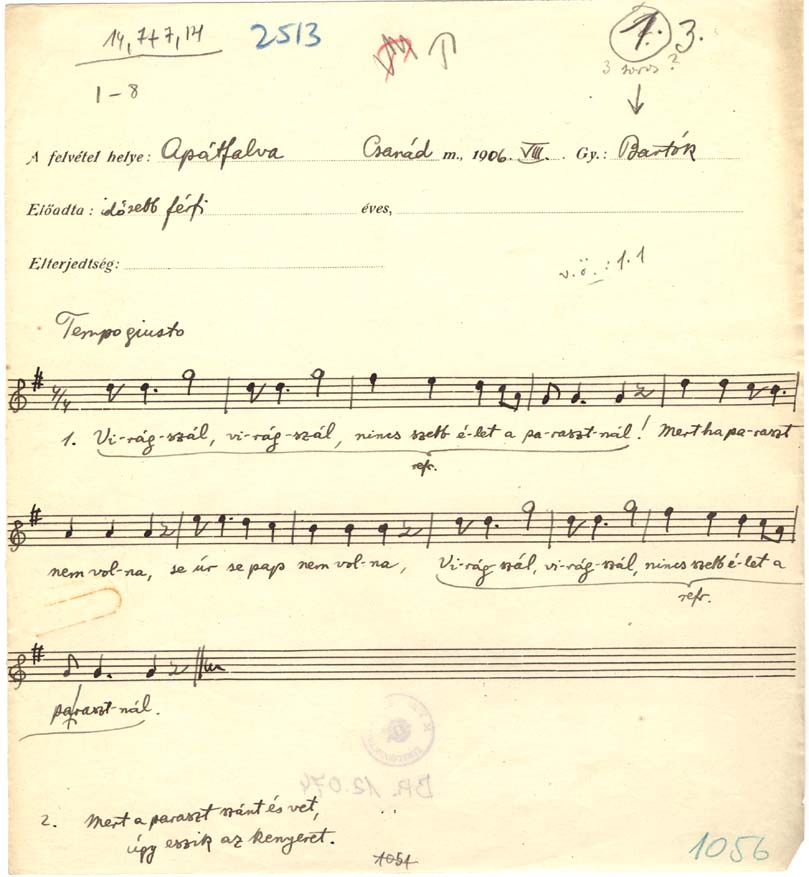 14, 7+7, 14
2513
1. 3.
3 soros?
1 – 8
A felvétel helye: Apátfalva Csanád m., 1906. VIII. Gy.: Bartók
Előadta: idősebb férfi éves,
Elterjedtség:
v.ö.: 1.1
Tempo giusto
4/4
1. Vi-rág-szál, vi-rág-szál, nincs szebb é-let a pa-raszt-nál! Mert ha pa-raszt
refr.
nem vol-na, se úr se pap nem vol-na, Vi-rág-szál, vi-rág-szál, nincs szebb é-let a
refr.
paraszt-nál.
BR. 12.074
2. Mert a paraszt szánt és vet,
úgy eszik az kenyeret.
1051
1056